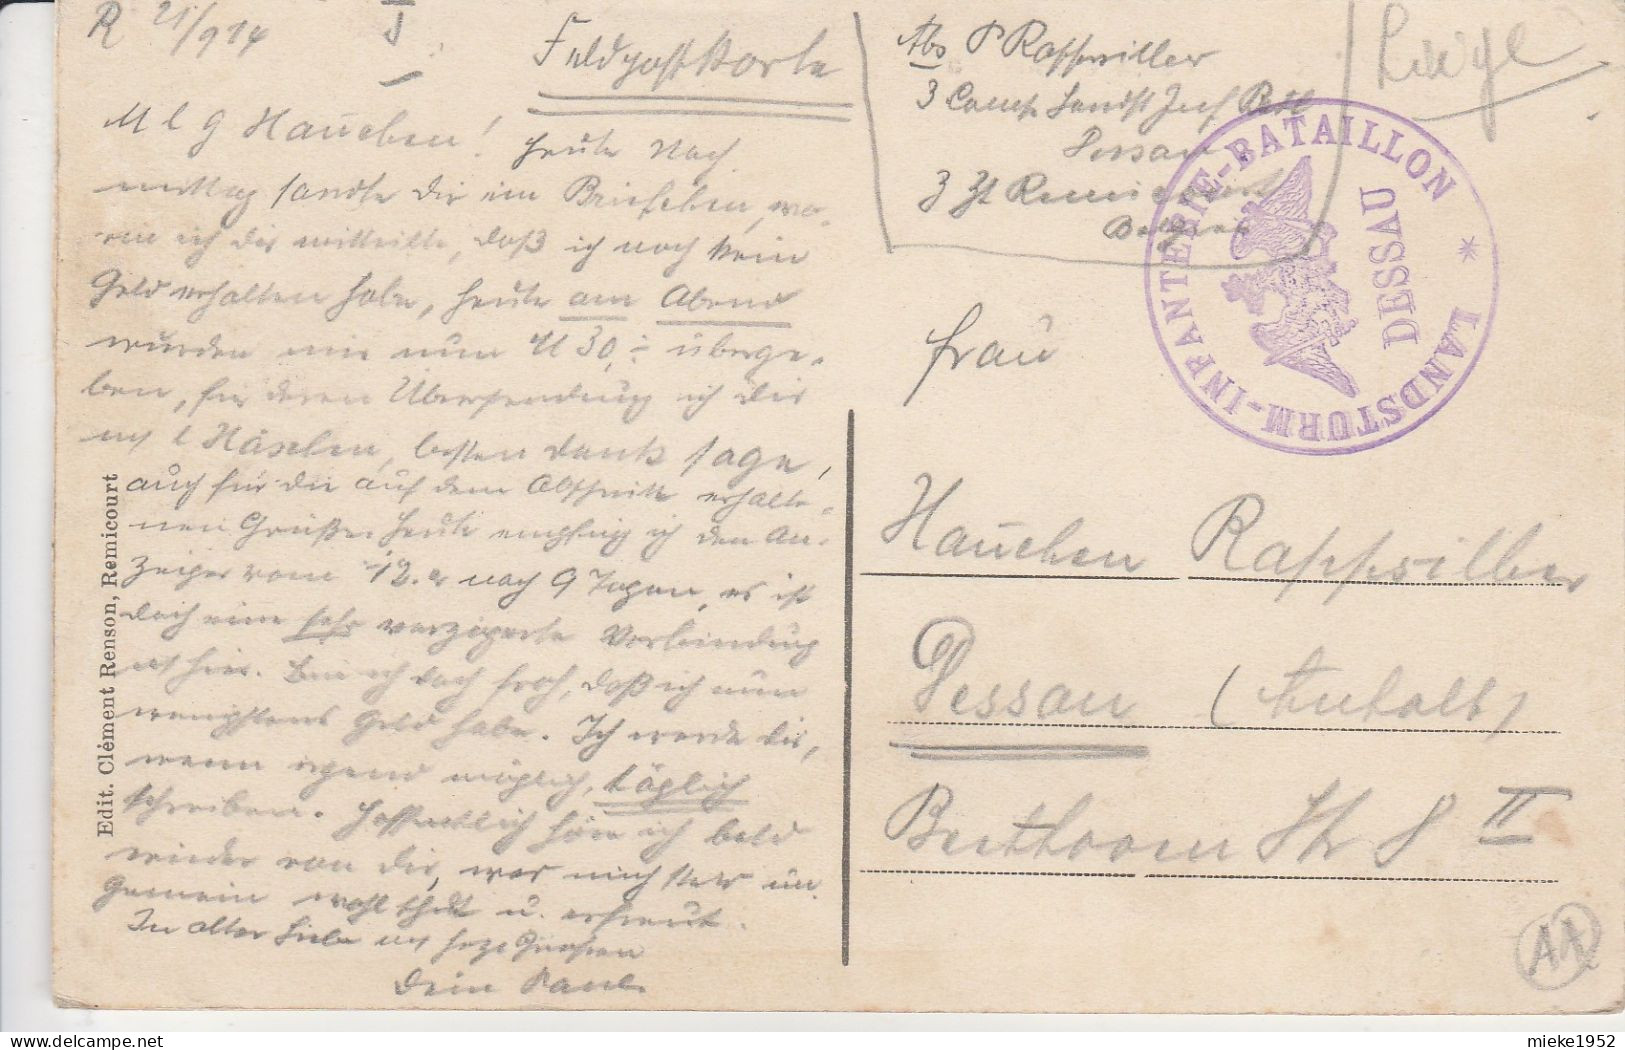 R 21/9 14 I
Feldpostkarte
M l g Hannchen! Heute Nach
mittag sandte Dir ein Briefchen, wo-
rin ich Dir mitteilte, daß ich noch kein
Geld erhalten habe, heute am Abend
wurden mir nun M 30,- überge-
ben, für deren Übersendung ich Dir
m l Häschen, besten Dank sage,
auch für die auf dem Abschnitt erhalte-
nen Grüße. Heute empfing ich den An-
zeiger vom 12. nach 9 Tagen, es ist
doch eine sehr verzögerte Verbindung
hier. Bin ich doch froh, daß ich nun
wenigstens Geld habe. Ich werde Dir,
wenn irgend möglich, täglich
schreiben. Hoffentlich höre ich bald
wieder von Dir, was mich stets un
gemein wohl thut u. erfreut.
In alter Liebe mit herzl Grüßen
Dein Paul.
Edit. Clément Renson, Remicourt
Abs P Rappsilber
3 Comp Landst Inf Batl
Dessau
z Zt Remicourt
Belgien
Liège
LANDSTURM-INFANTERIE-BATAILLON *
DESSAU
Frau
Hannchen Rappsilber
Dessau (Anhalt)
Beethoven Str 8 II
AA
mieke1952